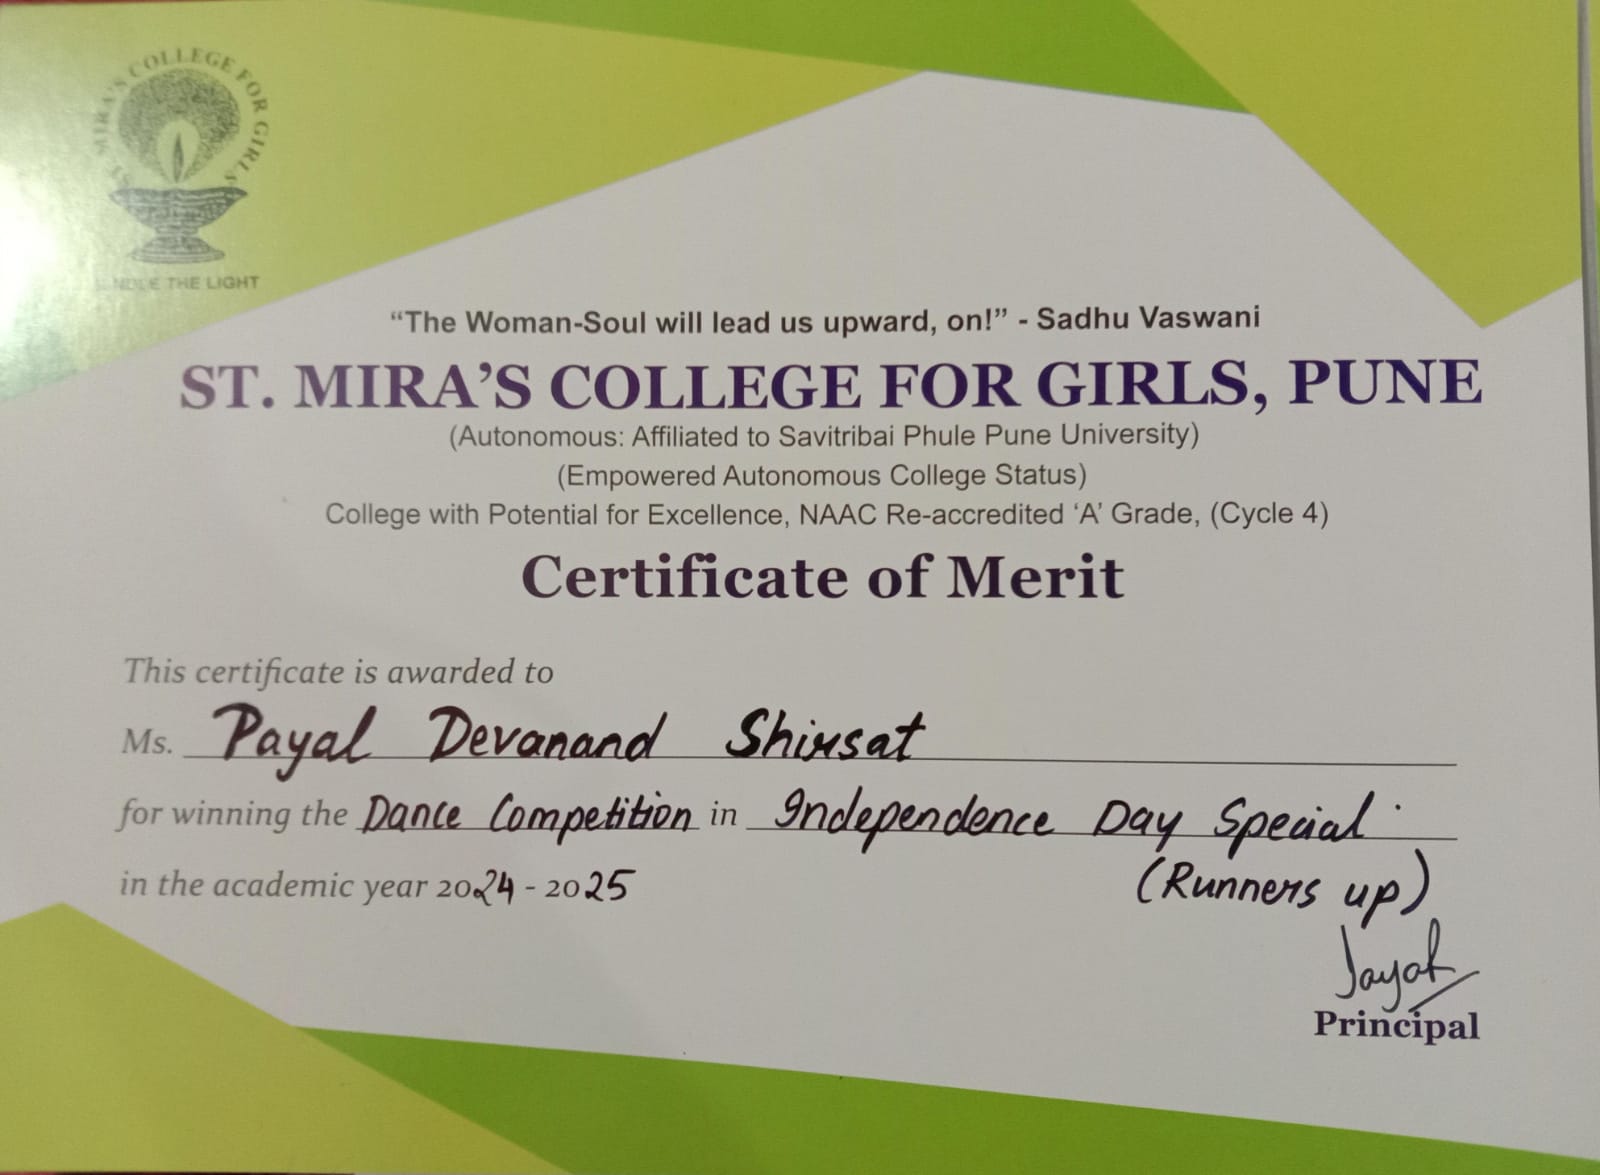 ST. MIRA'S COLLEGE FOR GIRLS
THE LIGHT
“The Woman-Soul will lead us upward, on!” - Sadhu Vaswani
ST. MIRA’S COLLEGE FOR GIRLS, PUNE
(Autonomous: Affiliated to Savitribai Phule Pune University)
(Empowered Autonomous College Status)
College with Potential for Excellence, NAAC Re-accredited ‘A’ Grade, (Cycle 4)
Certificate of Merit
This certificate is awarded to
Ms. Payal Devanand Shirsat
for winning the Dance Competition in Independence Day Special
in the academic year 2024 - 2025 (Runners up)
Principal